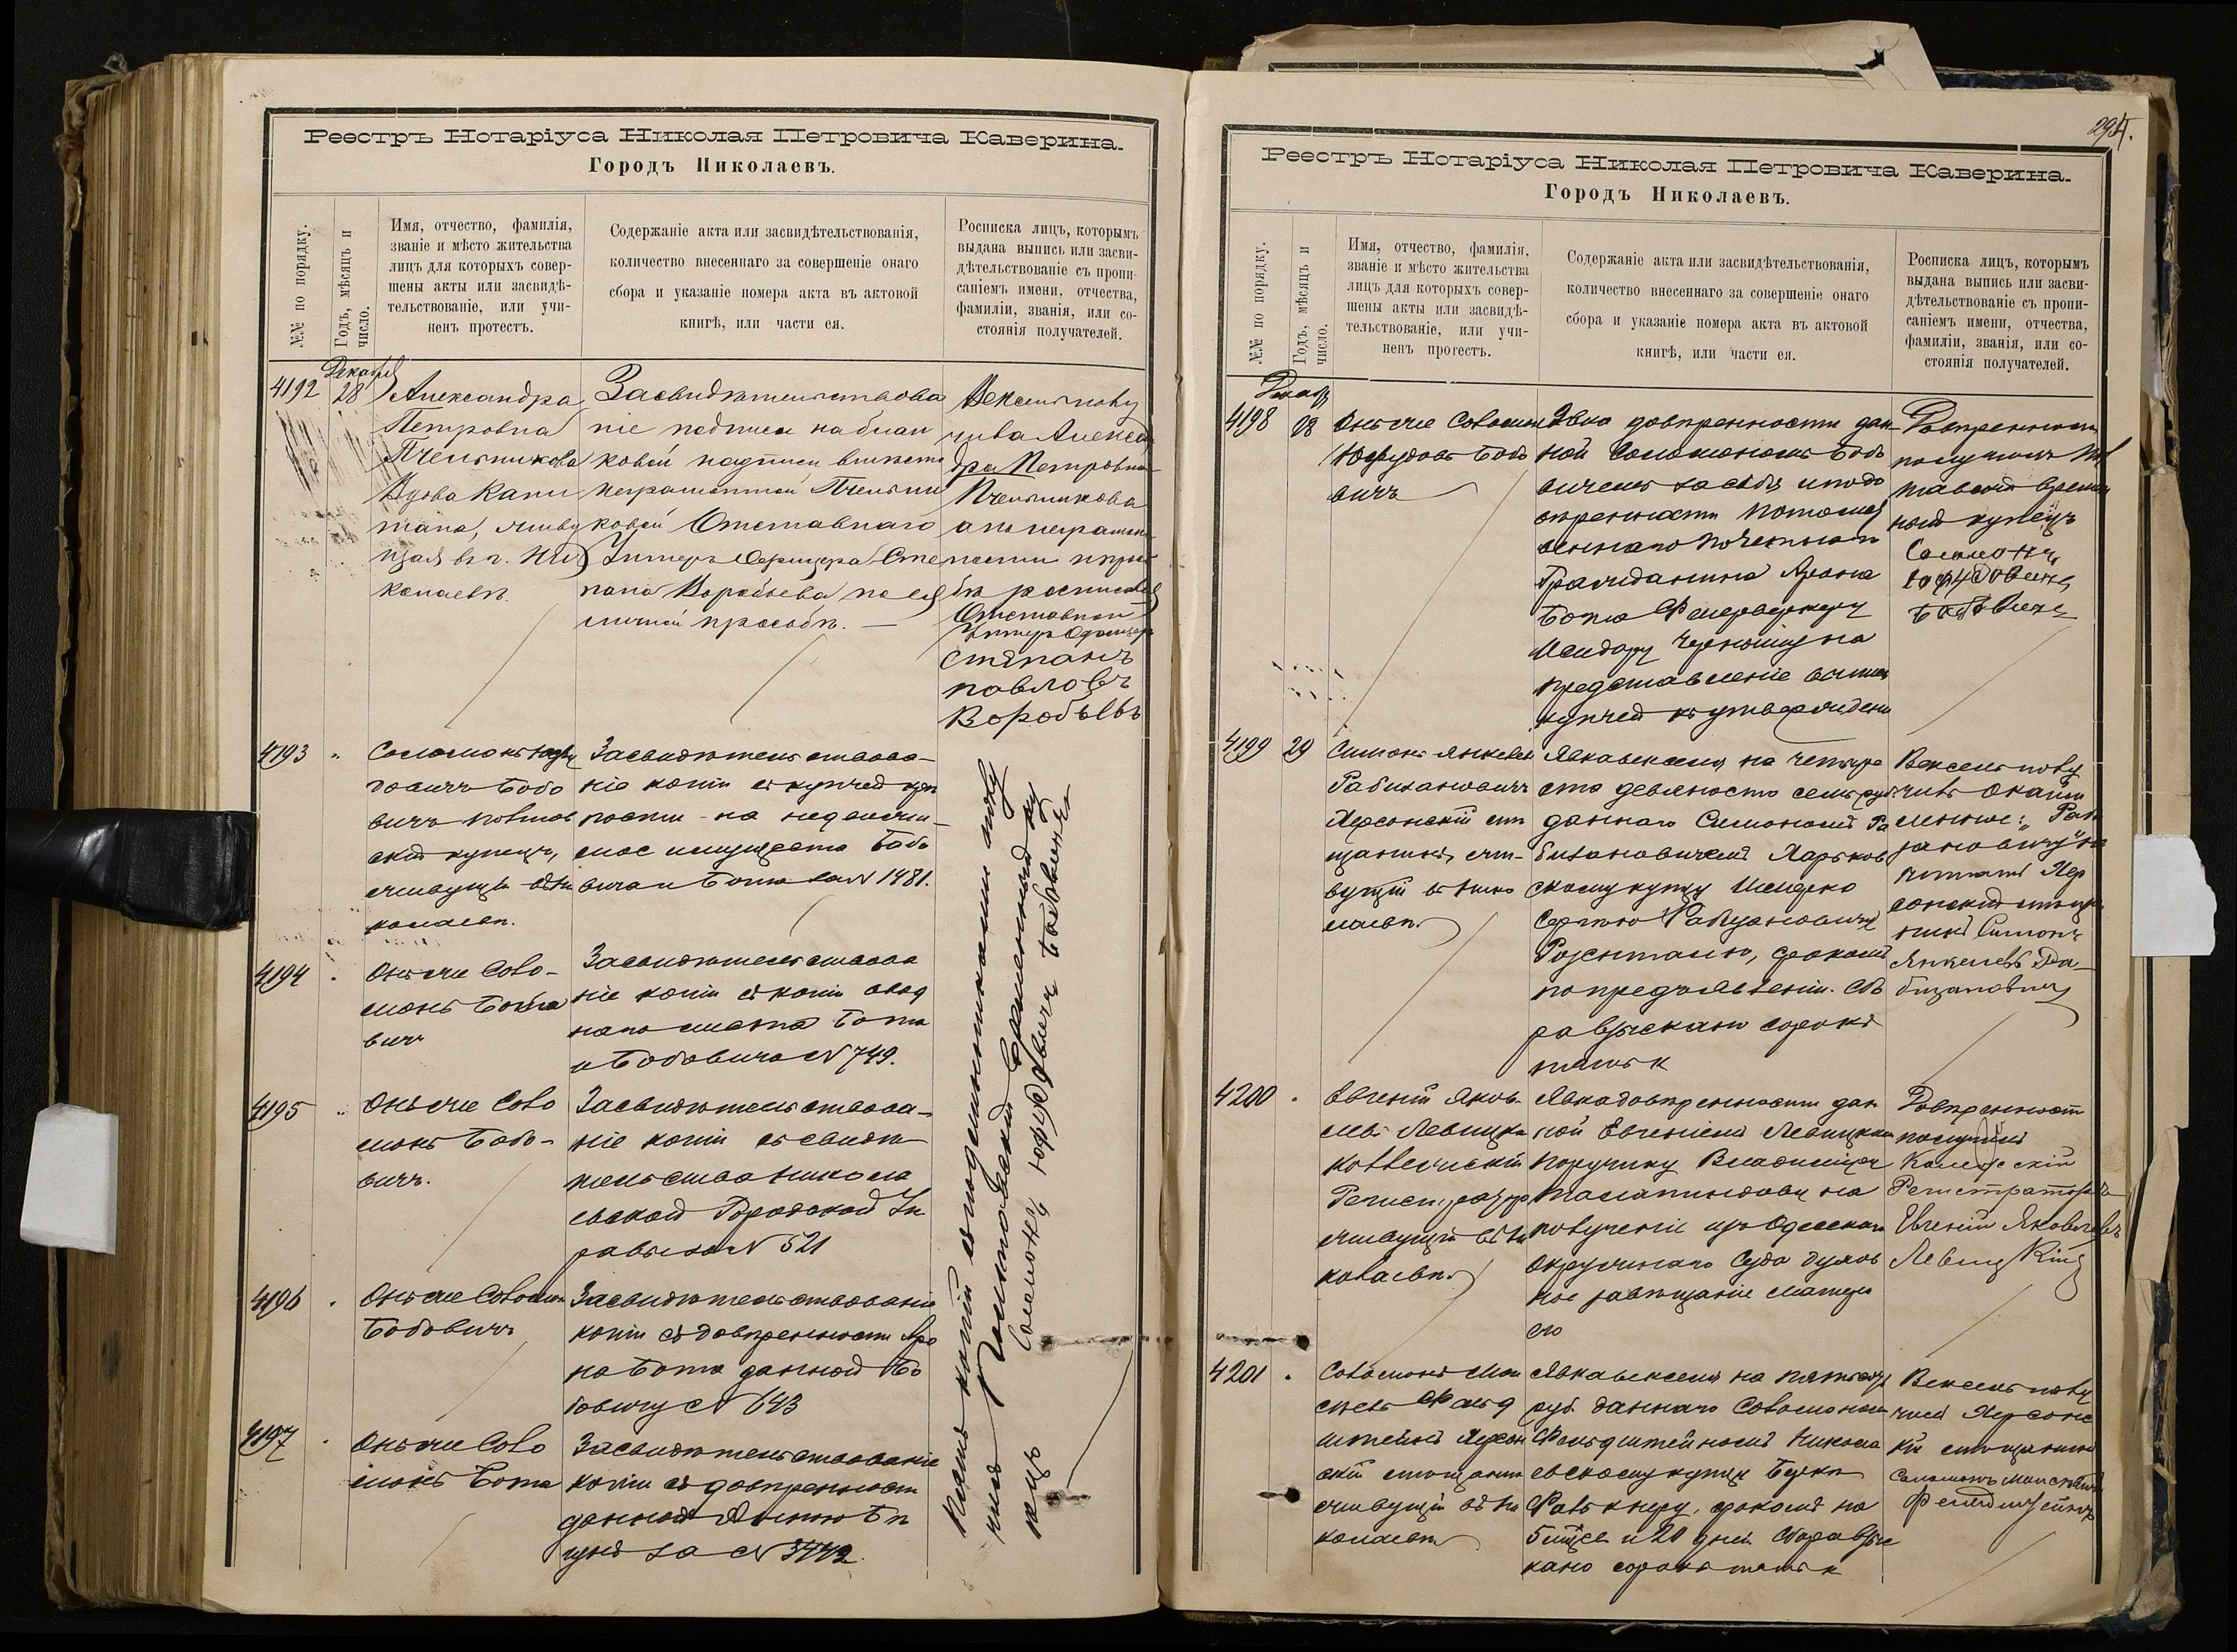 Реестръ Нотаріуса Николая Петровича Каверина.
Городъ Николаевъ.
№№ по порядку.
Годъ, мѣсяцъ и
число.
Имя, отчество, фамилія,
званіе и мѣсто жительства
лицъ для которыхъ совер-
шены акты или засвидѣ-
тельствованіе, или учи-
ненъ протестъ.
Содержаніе акта или засвидѣтельствованія,
количество внесеннаго за совершеніе онаго
сбора и указаніе номера акта въ актовой
книгѣ, или части ея.
Росписка лицъ, которымъ
выдана выпись или засви-
дѣтельствованіе съ пропи-
саніемъ имени, отчества,
фамиліи, званія, или со-
стоянія получателей.
Декабря
4192
28
Александра
Петровна
Пчельникова
Вдова Капи
тана, живу
щая въ г. Ни
колаевѣ.
Засвидѣтельствова
ніе подписи на блан
ковой надписи вмѣсто
неграмотной Пчельни
ковой Отставнаго
Унтеръ Офицера Сте
пана Воробьева по ея
личной просьбѣ. —
Вексель полу
чила Алексан
дра Петровна
Пчельникова
а по неграмот
ности и прось
бѣ росписался
Отставной
Унтеръ Офицеръ
Степанъ
Павловъ
Воробьевъ
4193
"
Соломонъ Юфу
довичъ Бобо
вичъ
купецъ,
живущій въ Ни
колаевѣ.
Засвидѣтельствова-
ніе копіи съ купчей крѣ
пости - на недвижи-
мое имущество Бобо
вича и Бота за № 1481.
4194
Онъ же Соло-
монъ Бобо
вичъ
Засвидѣтельствова
ніе копіи съ копіи
наго листа Бота
и Бобовича № 749.
4195
"
Онъ же Соло
монъ Бобо-
вичъ.
Засвидѣтельствова-
ніе копіи съ свидѣ
тельства Никола
евской Городской Уп
равы за № 521
4196
Онъ же Соломонъ
Бобовичъ
Засвидѣтельствованіе
копіи съ довѣренности Аро
на Бота данной Бо
бовичу № 643
4197
Онъ же Соло
монъ Бота
Засвидѣтельствованіе
копіи съ довѣренности
данной
за № 3442.
копій съ подлинниками полу
чилъ Полтавскій Временный ку
пецъ Соломонъ Юфудовичъ Бобовичъ
294.
Реестръ Нотаріуса Николая Петровича Каверина.
Городъ Николаевъ.
№№ по порядку.
Годъ, мѣсяцъ и
число.
Имя, отчество, фамилія,
званіе и мѣсто жительства
лицъ для которыхъ совер-
шены акты или засвидѣ-
тельствованіе, или учи-
ненъ протестъ.
Содержаніе акта или засвидѣтельствованія,
количество внесеннаго за совершеніе онаго
сбора и указаніе номера акта въ актовой
книгѣ, или части ея.
Росписка лицъ, которымъ
выдана выпись или засви-
дѣтельствованіе съ пропи-
саніемъ имени, отчества,
фамиліи, званія, или со-
стоянія получателей.
Декабр
4198
28
Онъ же Соломонъ
Юфудовъ Бобо
вичъ
Явка довѣренности дан
ной Соломономъ Бобо
вичемъ за себя и по до
вѣренности Потомст
веннаго Почетнаго
Гражданина Арона
Бота
Исидору на
представленіе
купчей къ утвержденію
Довѣренность
получилъ Пол
тавскій времен
ный купецъ
Соломонъ
Юфудовичъ
Бобовичъ
4199
29
Симонъ Янкелев
Рабинановичъ
Херсонскій мѣ
щанинъ, жи-
вущій въ Нико
лаевѣ.
Явка векселя на четыре
ста девяносто семь руб.
даннаго Симономъ Ра
бинановичемъ Харьков
скому купцу
Розенталю, срокомъ
по предъявленіи. Сбо
ра взыскано сорокъ
пять к
Вексель полу
чилъ
Хер
сонскій мѣща
нинъ Симонъ
Янкелевъ Ра-
4200
Евгеній Яков.
левъ Левицкій
Коллежскій
Регистраторъ
живущій въ Ни
колаевѣ.
Явка довѣренности дан
ной Евгеніемъ Левицкимъ
Поручику Владиміру
на
полученіе изъ Одесскаго
Окружнаго Суда духов
ное завѣщаніе матери
его
Довѣренность
получилъ
Коллежскій
Регистраторъ
Евгеній Яковлевъ
Левицкій
4201
Соломонъ Мои
сѣевъ Фельд
штейнъ Херсон
скій мѣщанинъ
живущій въ Ни
колаевѣ
Явка векселя на пятьсотъ
руб. даннаго Соломономъ
Фельдштейномъ Никола
евскому купцу
срокомъ на
5 мѣс. и 20 дней. Сбора взыс
кано сорокъ пять к
Вексель полу
чилъ Херсонс
кій мѣщанинъ
Соломонъ Моисѣевъ
Фельдштейнъ